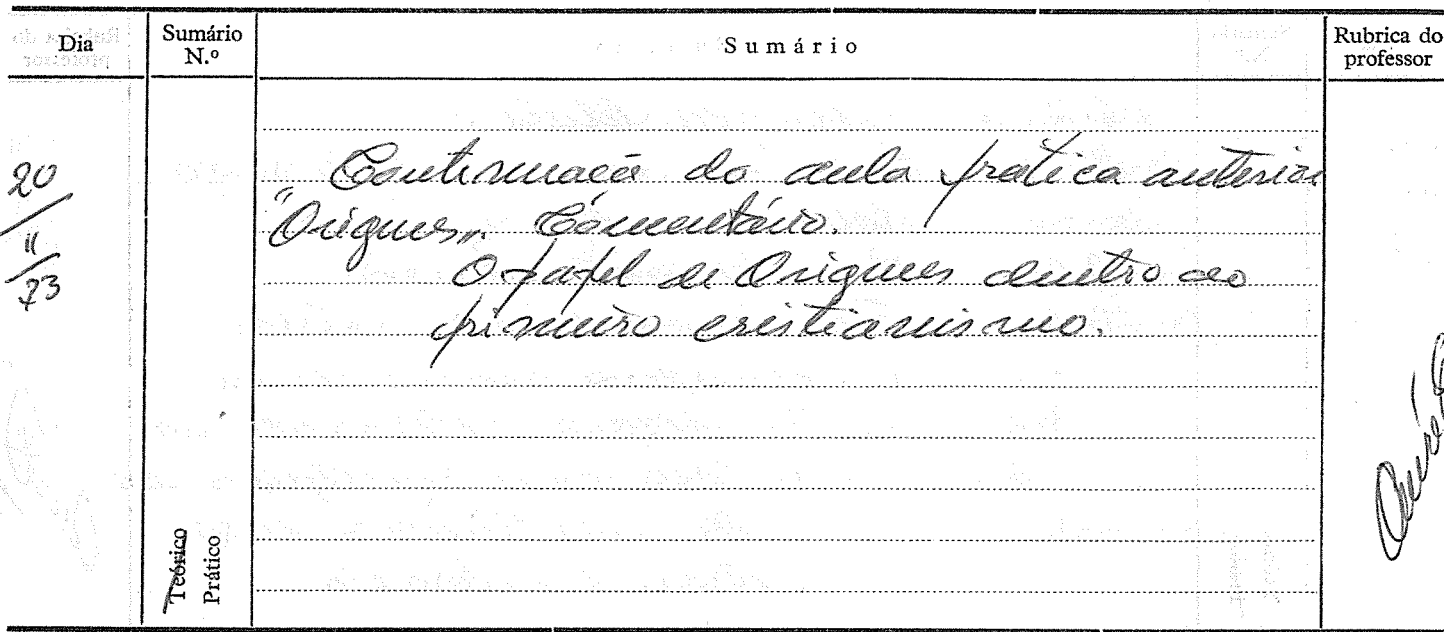 Dia
Sumário N.º
Sumário
Rubrica do professor
20
11
73
Continuação da aula prática anterior
"Orígenes". Comentário.
O papel de Orígenes dentro do
primeiro cristianismo.
Teórico
Prático